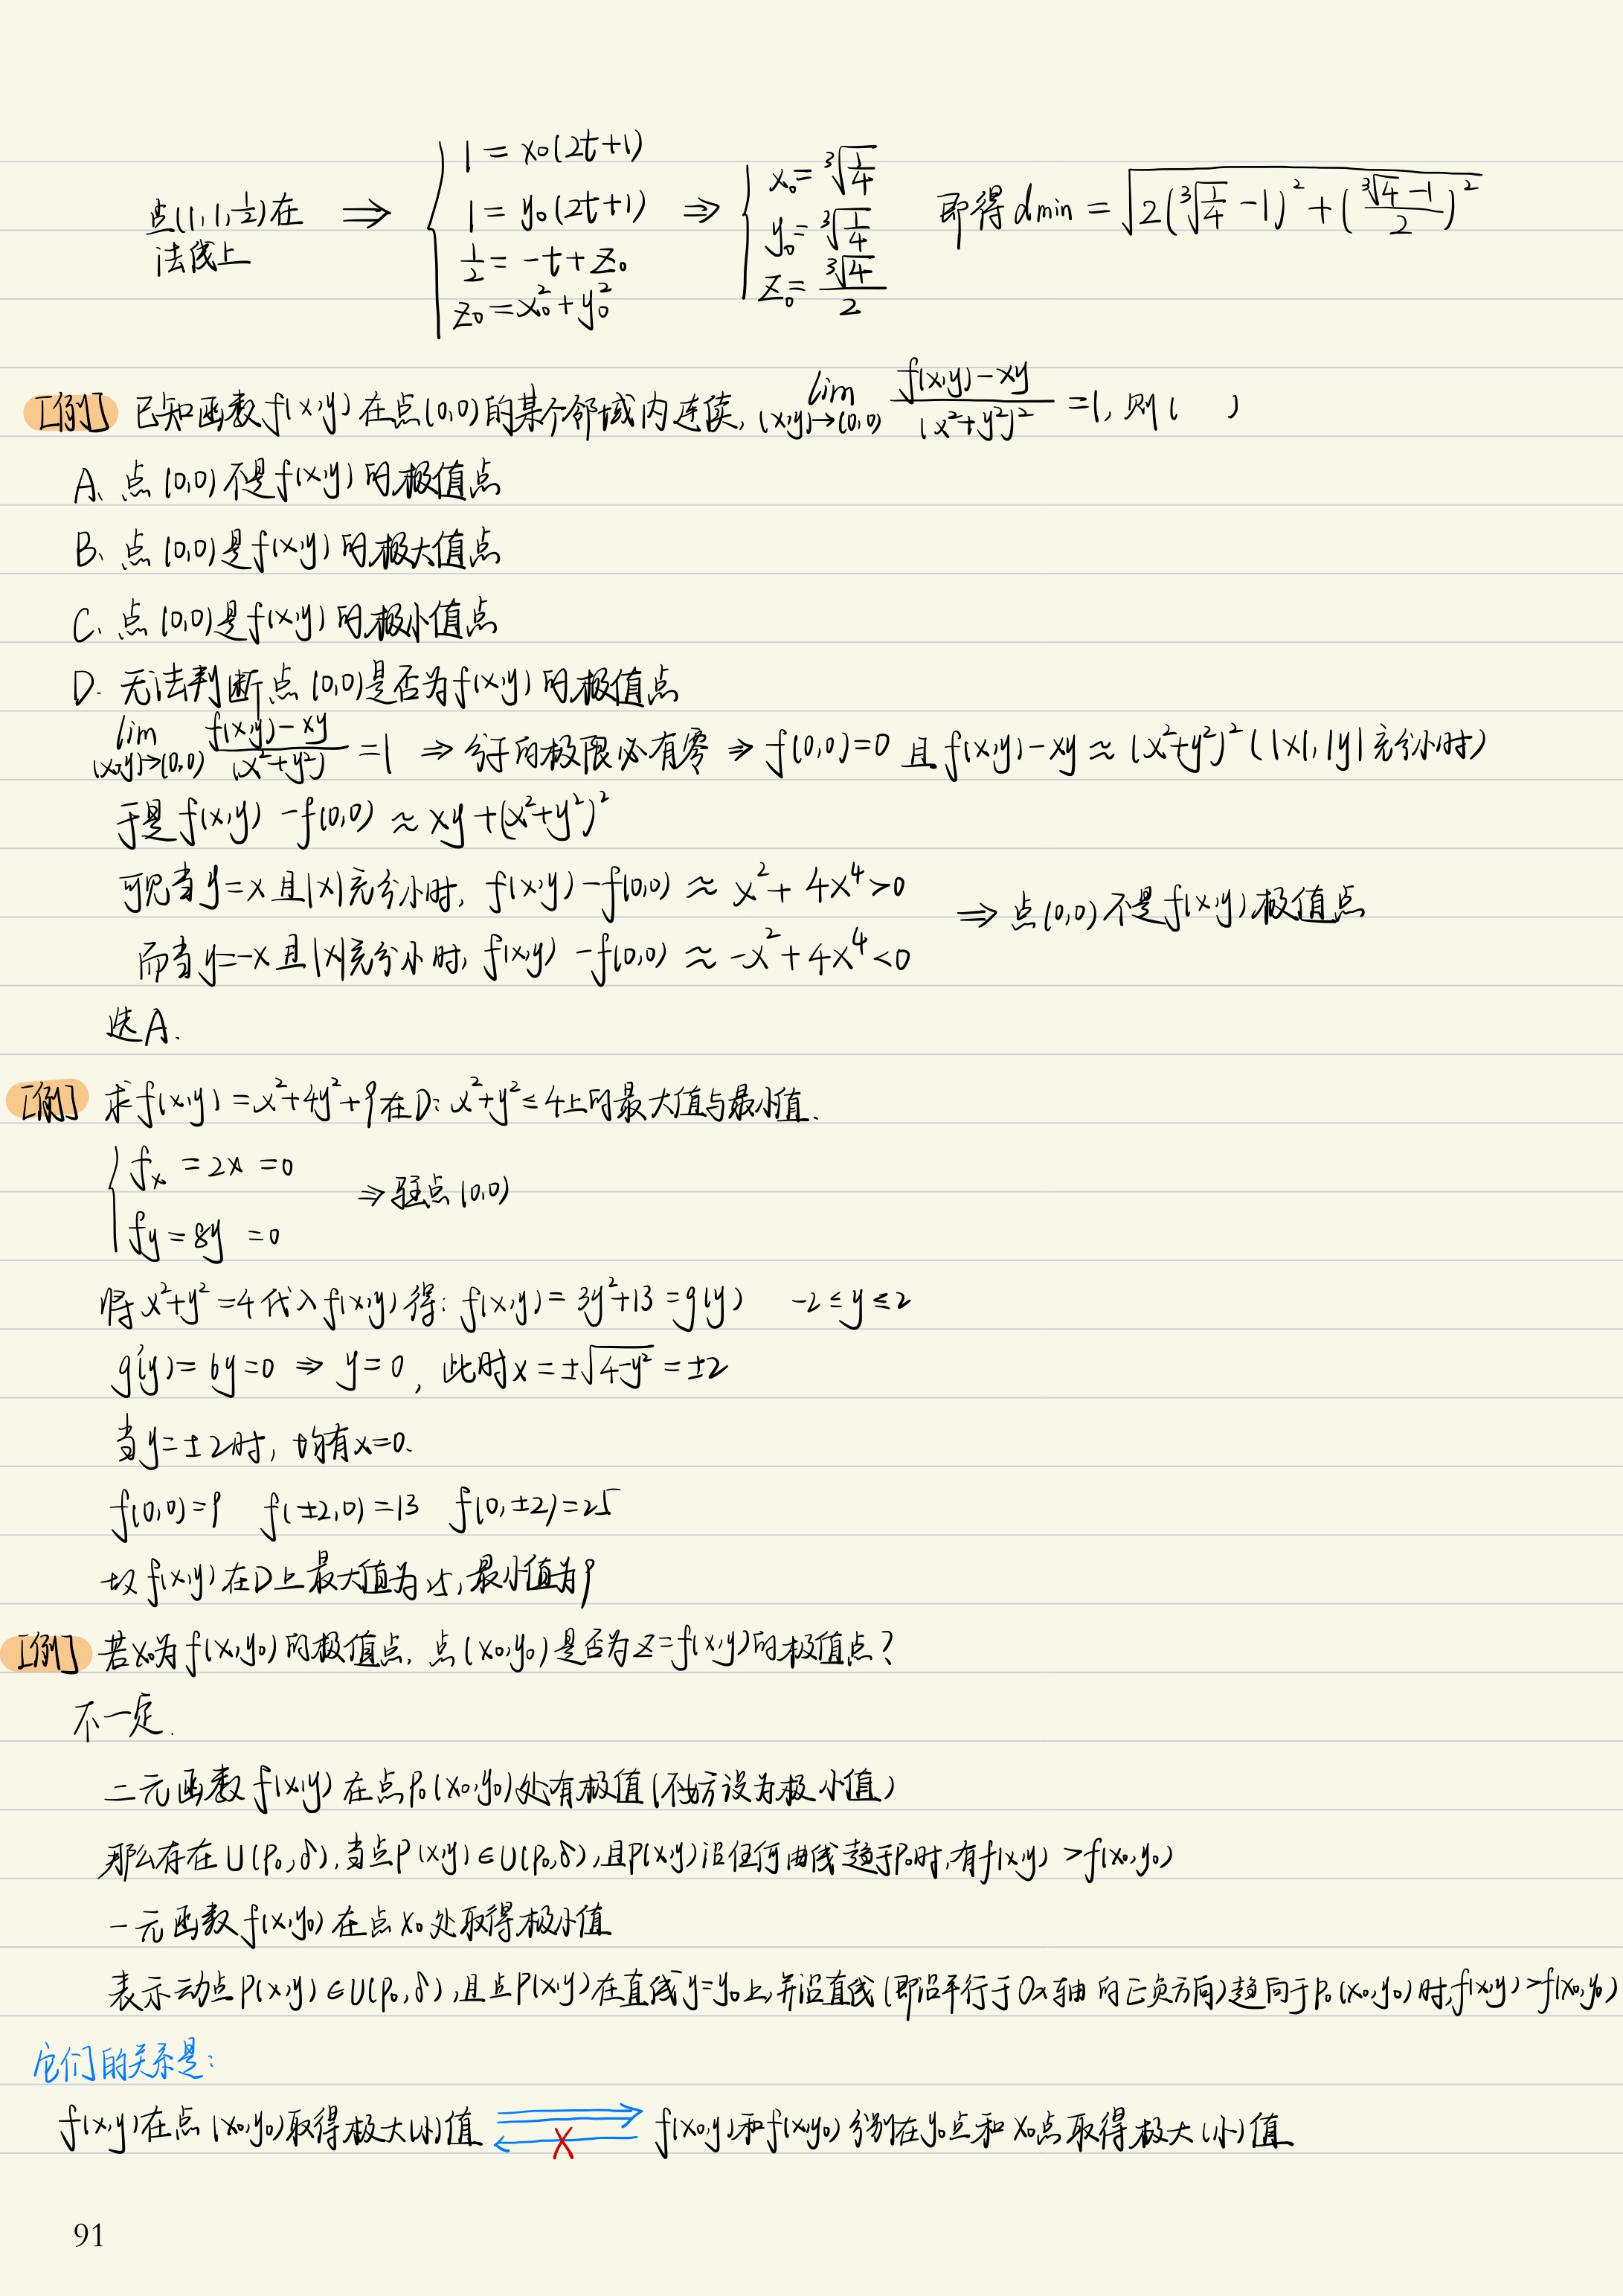 点(1,1,1/2)在法线上 ⇒ { 1 = x₀(2t+1)  1 = y₀(2t+1)  1/2 = -t + z₀  z₀ = x₀² + y₀² ⇒ { x₀ = ∛(1/4)  y₀ = ∛(1/4)  z₀ = ∛4/2  即得 dmin = √(2(∛(1/4) - 1)² + ((∛4 - 1)/2)²)
[例] 已知函数 f(x,y) 在点(0,0)的某个邻域内连续, lim (x,y)→(0,0) (f(x,y) - xy)/(x²+y²)² = 1, 则 (    )
A. 点(0,0)不是f(x,y)的极值点
B. 点(0,0)是f(x,y)的极大值点
C. 点(0,0)是f(x,y)的极小值点
D. 无法判断点(0,0)是否为f(x,y)的极值点
lim (x,y)→(0,0) (f(x,y) - xy)/(x²+y²) = 1 ⇒ 分子的极限必有零 ⇒ f(0,0)=0 且 f(x,y) - xy ≈ (x²+y²)² (|x|,|y|充分小时)
于是 f(x,y) - f(0,0) ≈ xy + (x²+y²)²
可见当 y=x 且|x|充分小时, f(x,y) - f(0,0) ≈ x² + 4x⁴ > 0
而当 y=-x 且|x|充分小时, f(x,y) - f(0,0) ≈ -x² + 4x⁴ < 0
⇒ 点(0,0)不是f(x,y)极值点
选A.
[例] 求 f(x,y) = x²+4y²+9 在D: x²+y² ≤ 4上的最大值与最小值.
{ fx = 2x = 0
fy = 8y = 0 ⇒ 驻点(0,0)
将 x²+y² = 4 代入f(x,y) 得: f(x,y) = 3y²+13 = g(y)  -2 ≤ y ≤ 2
g'(y) = 6y = 0 ⇒ y = 0, 此时 x = ±√(4-y²) = ±2
当 y = ±2时, 均有x=0.
f(0,0)=9  f(±2,0)=13  f(0,±2)=25
故 f(x,y) 在D上最大值为25, 最小值为9
[例] 若x₀为f(x,y₀)的极值点, 点(x₀,y₀)是否为z=f(x,y)的极值点?
不一定.
二元函数 f(x,y) 在点P₀(x₀,y₀)处有极值(不妨设为极小值)
那么存在 U(P₀,δ), 当点P(x,y)∈U(P₀,δ), 且P(x,y)沿任何曲线趋于P₀时, 有f(x,y) > f(x₀,y₀)
一元函数 f(x,y₀) 在点x₀处取得极小值
表示动点P(x,y)∈U(P₀,δ), 且点P(x,y)在直线y=y₀上, 并沿直线(即沿平行于Ox轴的正负方向)趋向于P₀(x₀,y₀)时, f(x,y) > f(x₀,y₀)
它们的关系是:
f(x,y)在点(x₀,y₀)取得极大(小)值 ⇄ X f(x₀,y)和f(x,y₀)分别在y₀点和x₀点取得极大(小)值
91